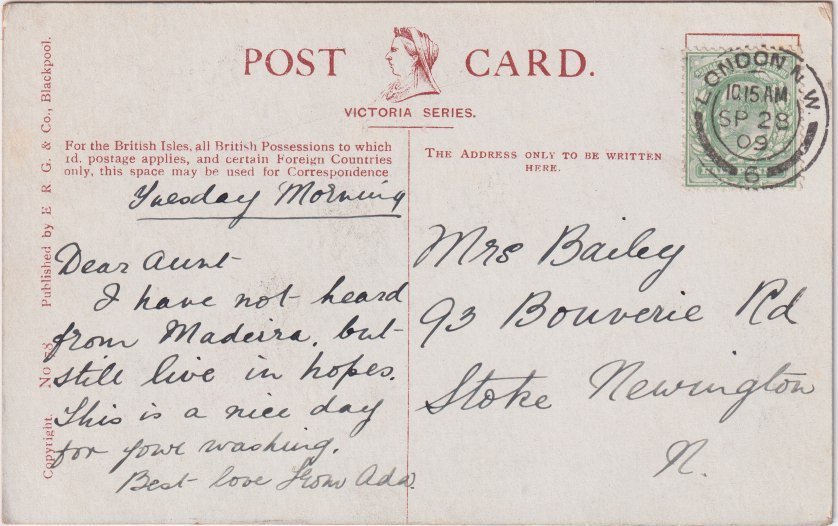 POST CARD.
VICTORIA SERIES.
For the British Isles, all British Possessions to which
1d. postage applies, and certain Foreign Countries
only, this space may be used for Correspondence
THE ADDRESS ONLY TO BE WRITTEN
HERE.
LONDON N.W.
10.15 AM
SP 28
09
6
Copyright. No 78. Published by E. R. G. & Co., Blackpool.
Tuesday Morning
Dear Aunt
I have not heard
from Madeira, but
still live in hopes.
This is a nice day
for your washing.
Best love from Ada.
Mrs Bailey
93 Bouverie Rd
Stoke Newington
N.